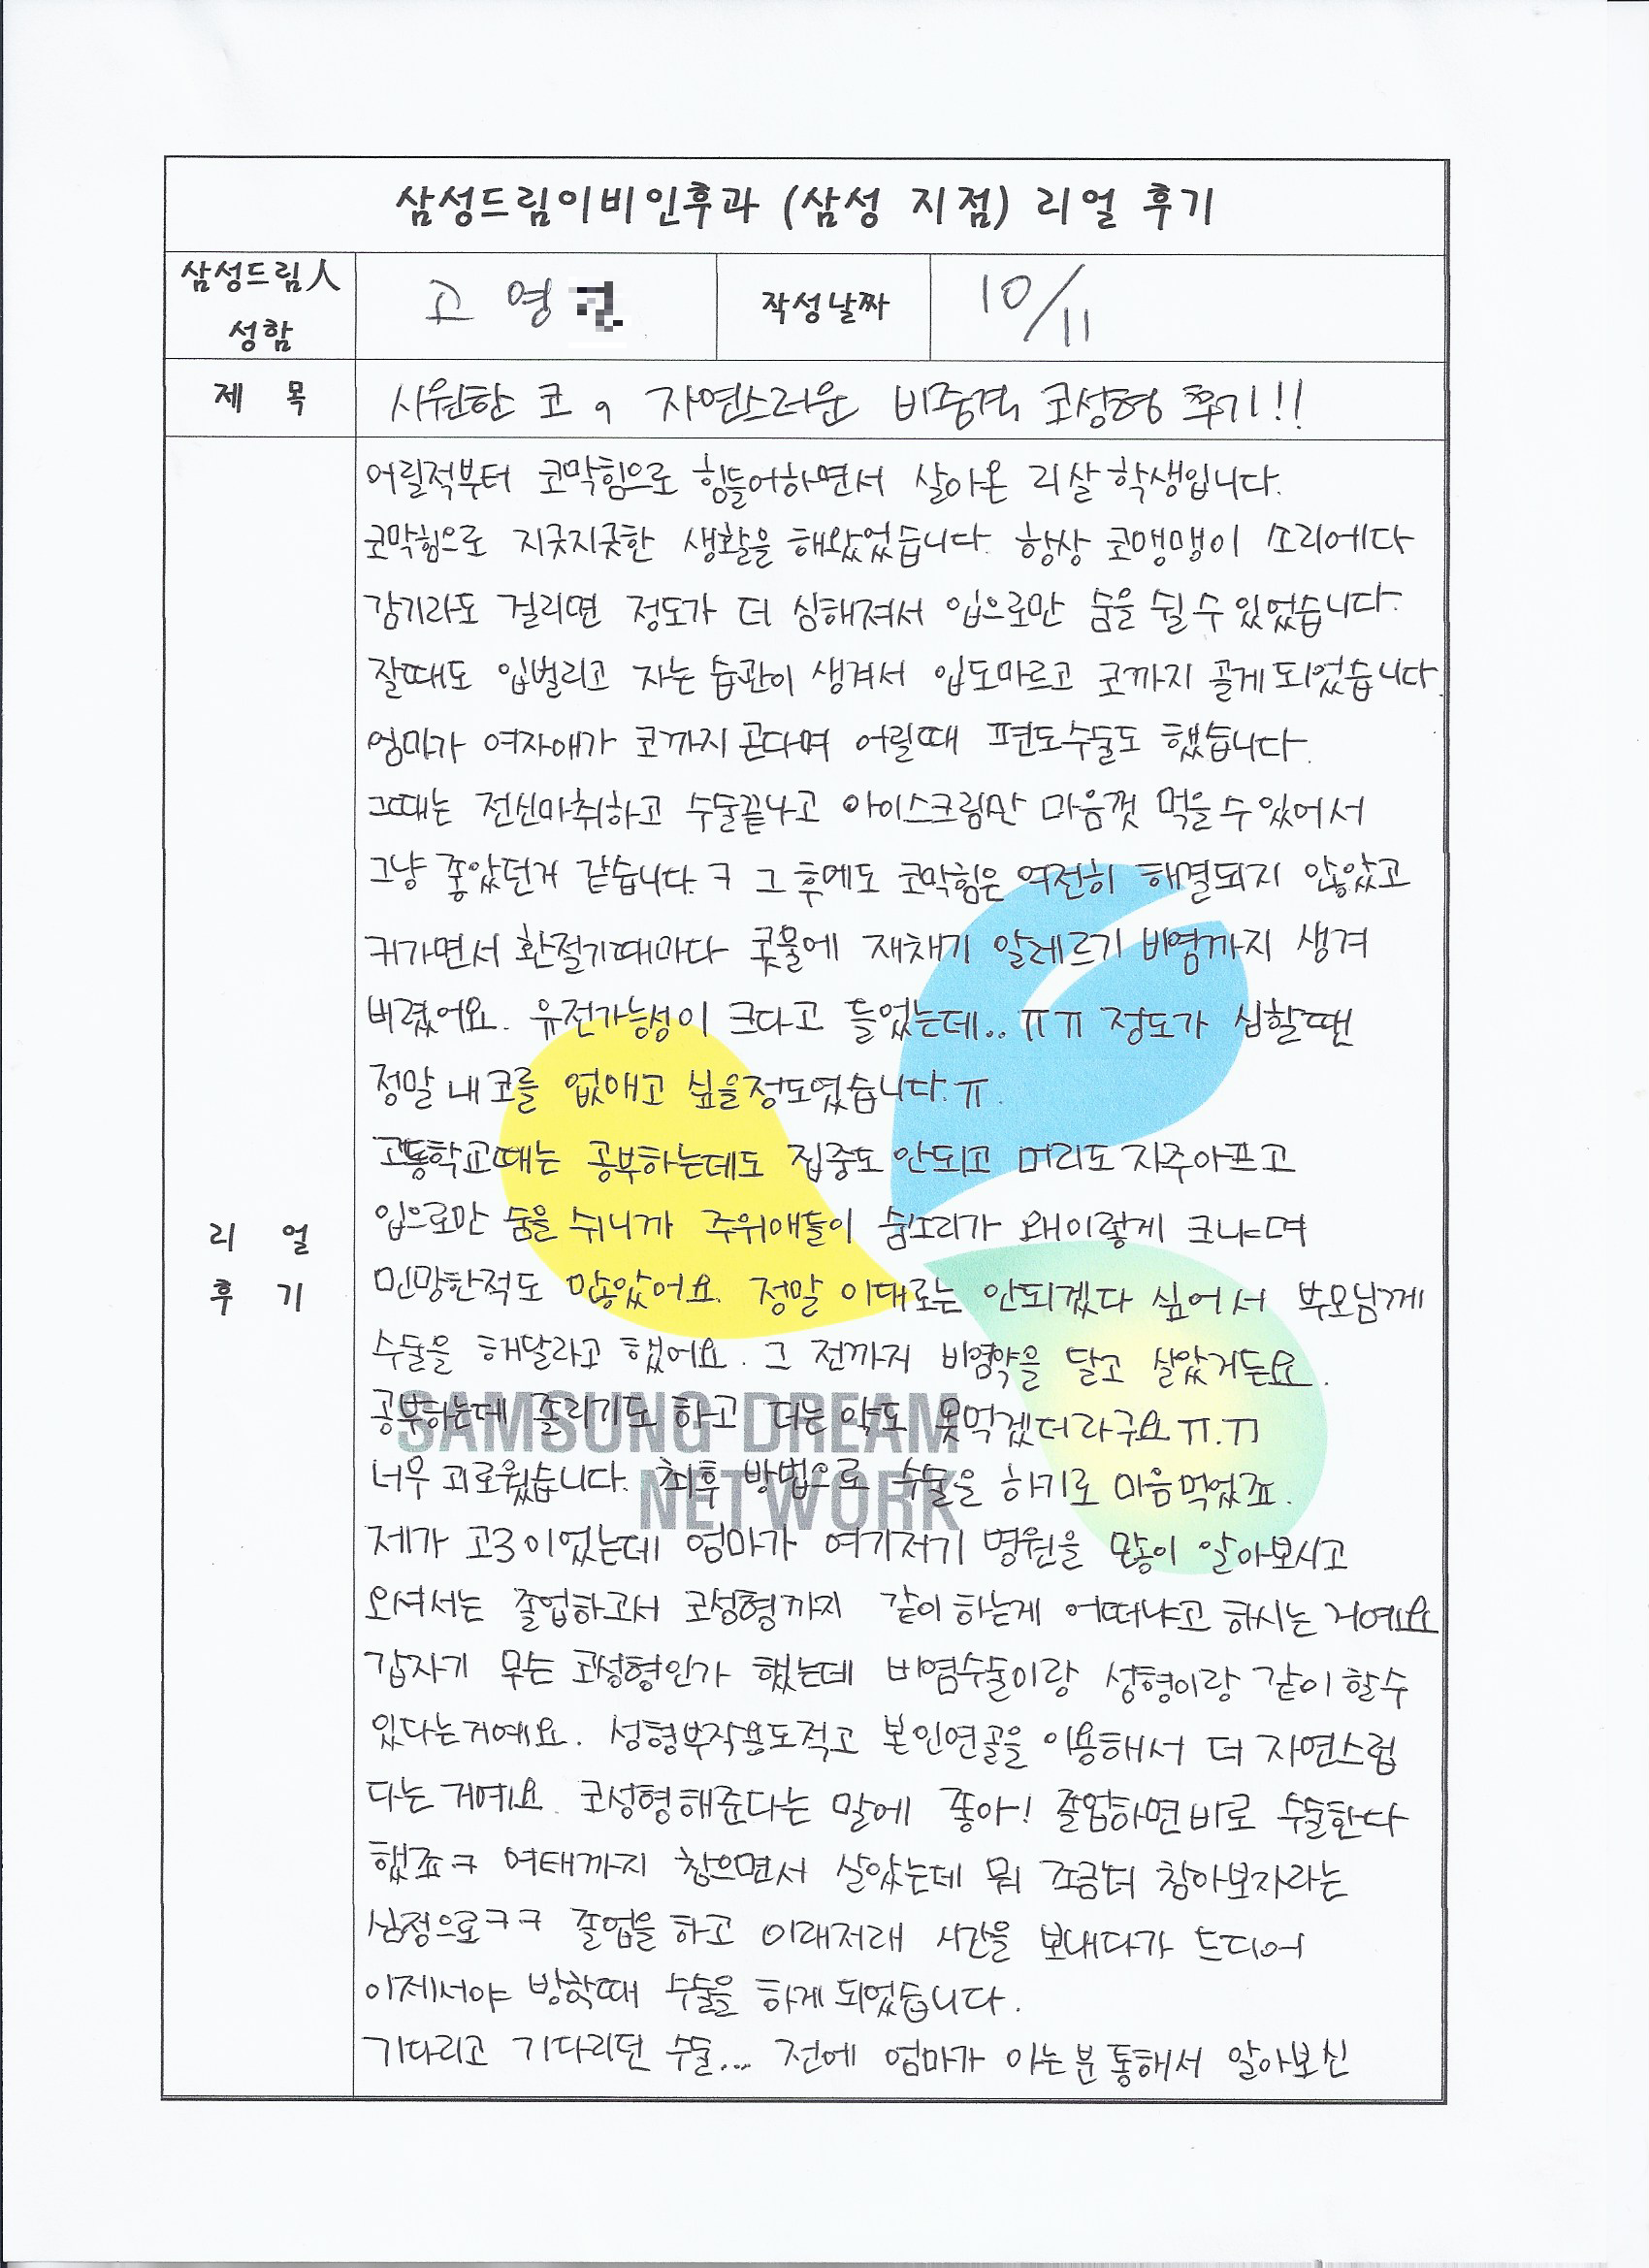 삼성드림이비인후과 (삼성 지점) 리얼 후기
삼성드림人
성함
고 영
작성날짜
10/11
제 목
시원한 코, 자연스러운 비중격 코성형 후기!!
리 얼
후 기
어릴적부터 코막힘으로 힘들어하면서 살아온 21살 학생입니다.
코막힘으로 지긋지긋한 생활을 해왔었습니다. 항상 코맹맹이 소리에다
감기라도 걸리면 정도가 더 심해져서 입으로만 숨을 쉴 수 있었습니다.
잘때도 입벌리고 자는 습관이 생겨서 입도마르고 코까지 골게 되었습니다.
엄마가 여자애가 코까지 곤다며 어릴때 편도수술도 했습니다.
그때는 전신마취하고 수술끝나고 아이스크림만 마음껏 먹을 수 있어서
그냥 좋았던거 같습니다.ㅋ 그 후에도 코막힘은 여전히 해결되지 않았고
커가면서 환절기때마다 콧물에 재채기 알레르기 비염까지 생겨
버렸어요. 유전가능성이 크다고 들었는데.. ㅠㅠ 정도가 심할땐
정말 내 코를 없애고 싶을정도였습니다.ㅠ.
고등학교때는 공부하는데도 집중도 안되고 머리도 자주아프고
입으로만 숨을 쉬니까 주위애들이 숨소리가 왜이렇게 크냐며
민망한적도 많았어요. 정말 이대로는 안되겠다 싶어서 부모님께
수술을 해달라고 했어요. 그 전까지 비염약을 달고 살았거든요.
공부하는데 졸리기도 하고 더는 약도 못먹겠더라구요ㅠ.ㅠ
너무 괴로웠습니다. 최후 방법으로 수술을 하기로 마음먹었죠.
제가 고3이었는데 엄마가 여기저기 병원을 많이 알아보시고
오셔서는 졸업하고서 코성형까지 같이 하는게 어떠냐고 하시는 거예요
갑자기 무슨 코성형인가 했는데 비염수술이랑 성형이랑 같이 할수
있다는거예요. 성형부작용도적고 본인연골을 이용해서 더 자연스럽
다는 거예요. 코성형해준다는 말에 좋아! 졸업하면바로 수술한다
했죠ㅋ 여태까지 참으면서 살았는데 뭐 조금더 참아보자라는
심정으로ㅋㅋ 졸업을 하고 이래저래 시간을 보내다가 드디어
이제서야 방학때 수술을 하게 되었습니다.
기다리고 기다리던 수술... 전에 엄마가 아는분 통해서 알아보신
SAMSUNG DREAM
NETWORK